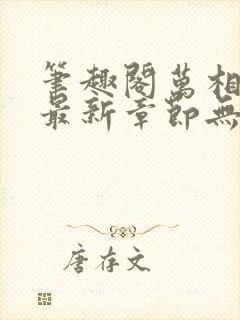 筆趣閣萬相
最新章節無
唐存文